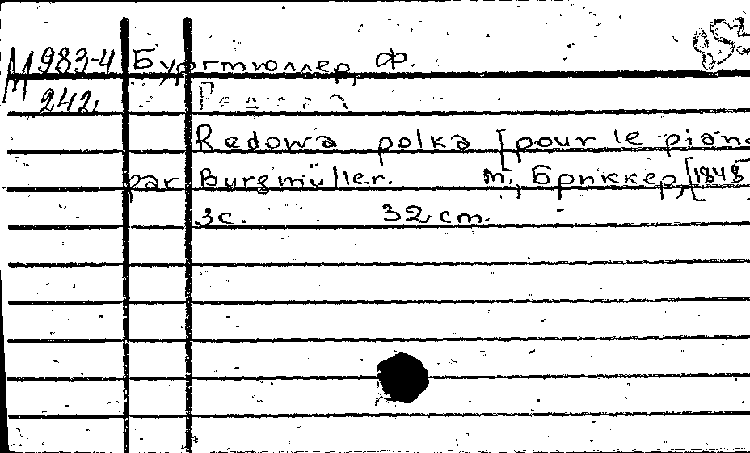 М 983-4 Бургмюллер, Ф.
242
Redowa polka [pour le piano
par Burgmüller. М., Бриккер, [1848
3 с. 32 cm.